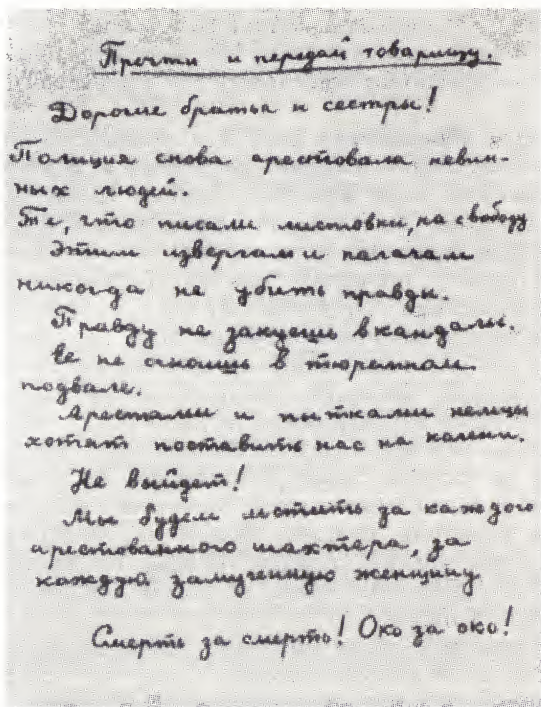 Прочти и передай товарищу.
Дорогие братья и сестры!
Полиция снова арестовала невин-
ных людей.
Те, что писали листовки, на свободу
Этим извергам и палачам
никогда не убить правды.
Правду не закуешь в кандалы.
Ее не сгноишь в тюремном
подвале.
Арестами и пытками немцы
хотят поставить нас на колени.
Не выйдет!
Мы будем мстить за каждого
арестованного шахтера, за
каждую замученную женщину
Смерть за смерть! Око за око!